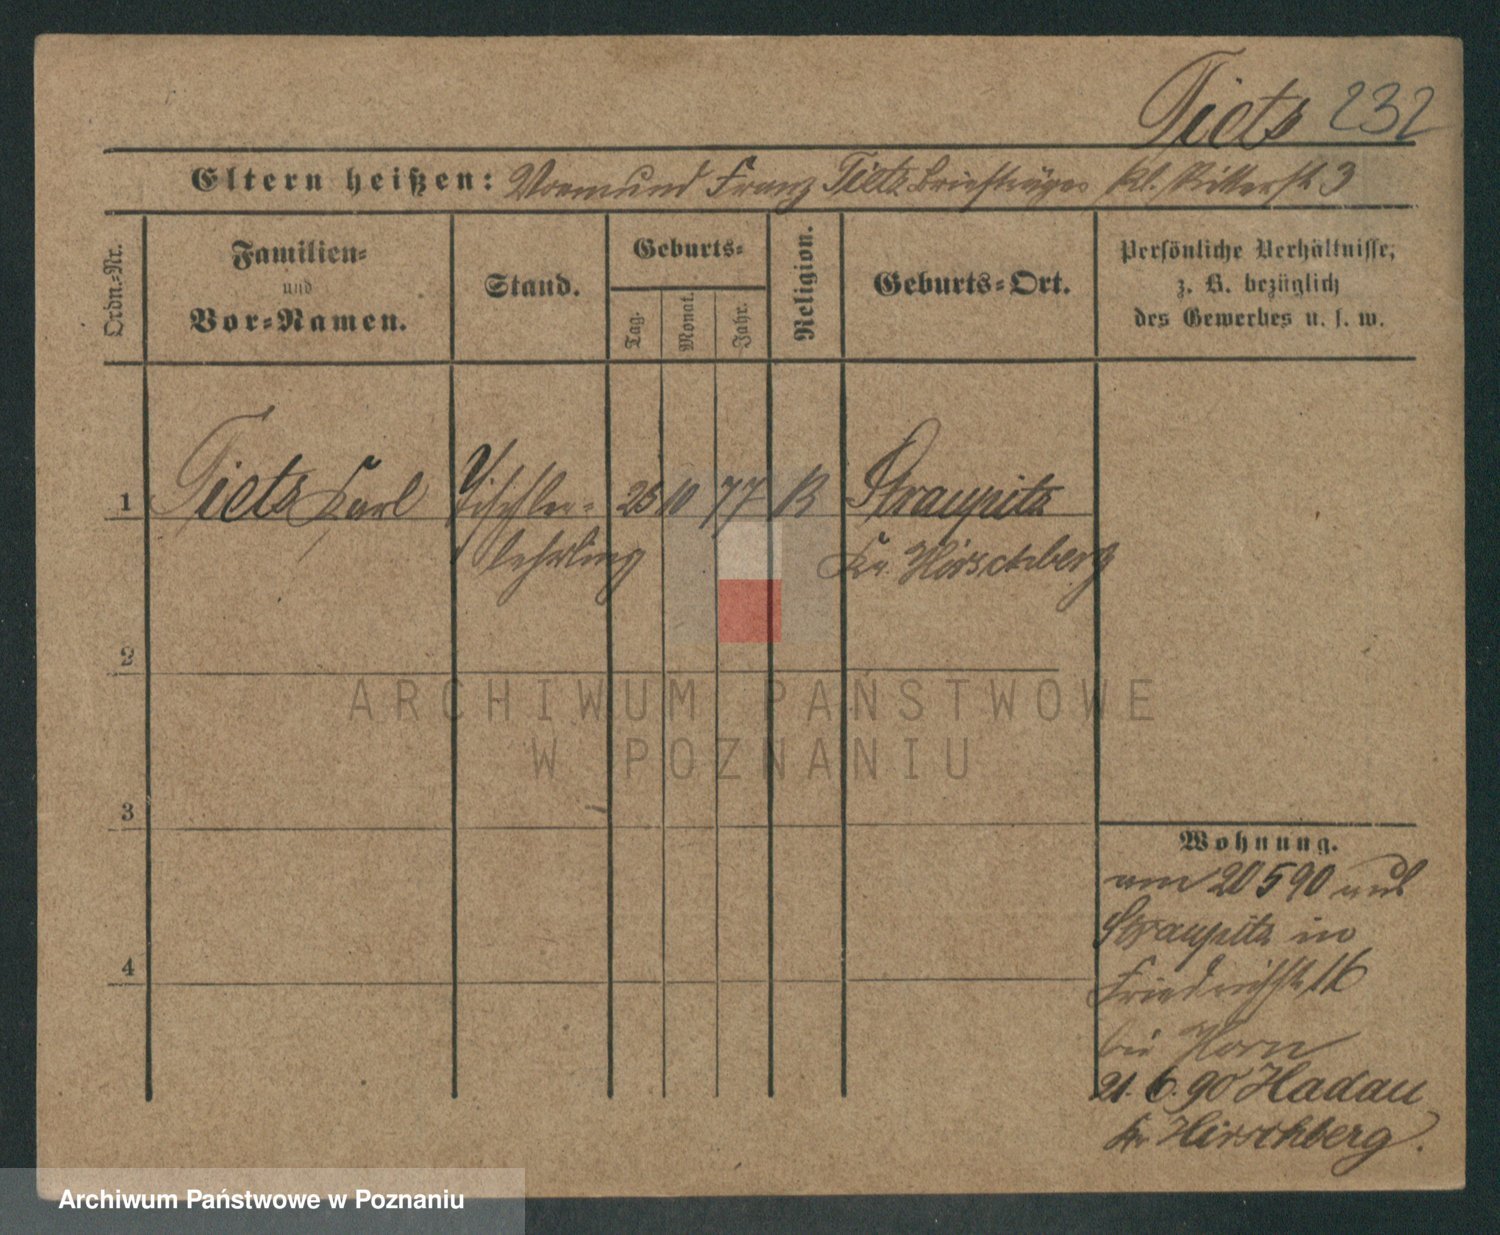 Tietz 232
Eltern heißen: Vormund Franz Tietz Briefträger kl. Ritterstr 3
Ordn.-Nr.
Familien-
und
Vor-Namen.
Stand.
Geburts-
Tag.
Monat.
Jahr.
Religion.
Geburts-Ort.
Persönliche Verhältnisse,
z. B. bezüglich
des Gewerbes u. s. w.
1 Tietz Karl Tischler- 25 10 77 K Straupitz
lehrling Kr. Hirschberg
2
3
4
Wohnung.
am 20 5 90 aus
Straupitz in
Friedrichstr 16
bei Horn
21. 6. 90 Hadau
Kr Hirschberg.
ARCHIWUM PAŃSTWOWE
W POZNANIU
Archiwum Państwowe w Poznaniu